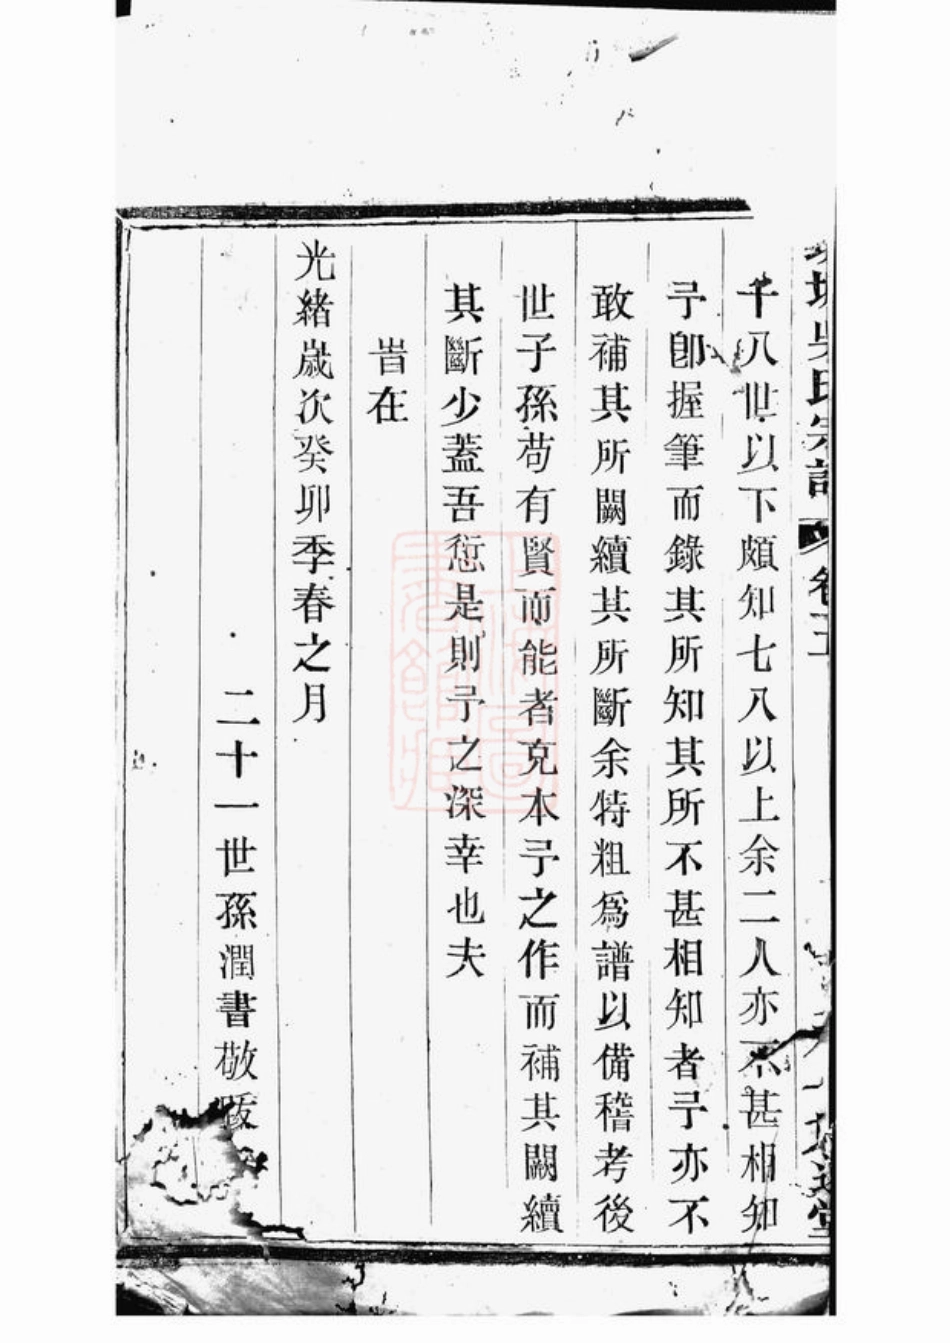 吳氏宗譜 卷
千八世以下頗知七八以上余二人亦不甚相知
予卽握筆而錄其所知其所不甚相知者予亦不
敢補其所闕續其所斷余特粗爲譜以備稽考後
世子孫苟有賢而能者克本予之作而補其闕續
其斷少蓋吾愆是則予之深幸也夫
旹在
光緒歲次癸卯季春之月
二十一世孫潤書敬